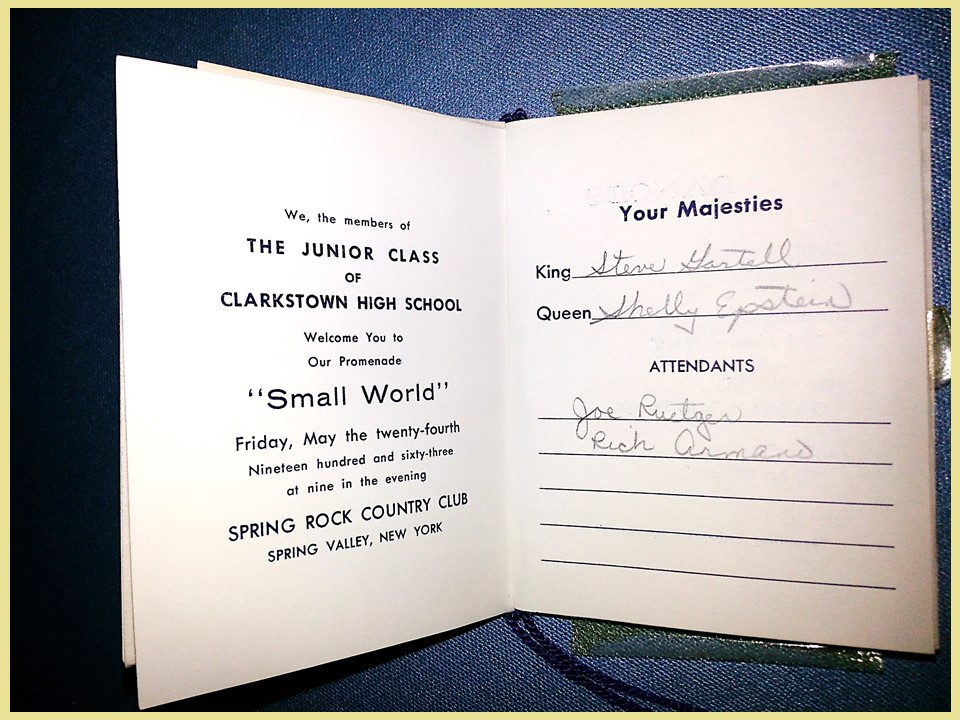 We, the members of
THE JUNIOR CLASS
OF
CLARKSTOWN HIGH SCHOOL
Welcome You to
Our Promenade
"Small World"
Friday, May the twenty-fourth
Nineteen hundred and sixty-three
at nine in the evening
SPRING ROCK COUNTRY CLUB
SPRING VALLEY, NEW YORK
Your Majesties
King Steve
Queen Shelly Epstein
ATTENDANTS
Joe
Rich Armano